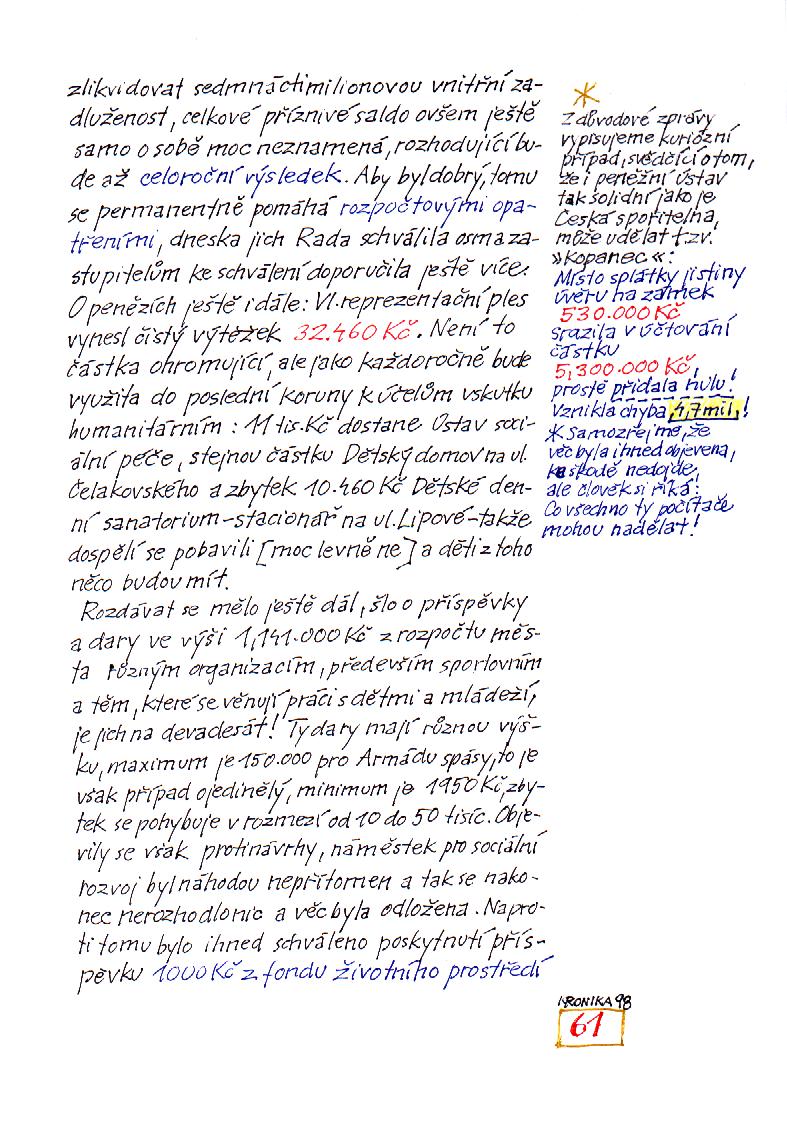 zlikvidovat sedmnáctimilionovou vnitřní za-
dluženost, celkové příznivé saldo ovšem ještě
samo o sobě moc neznamená, rozhodující bu-
de až celoroční výsledek. Aby byl dobrý, tomu
se permanentně pomáhá rozpočtovými opa-
třeními, dneska jich Rada schválila osm a za-
stupitelům ke schválení doporučila ještě více.
O penězích ještě i dále: VI. reprezentační ples
vynesl čistý výtěžek 32.460 Kč. Není to
částka ohromující, ale jako každoročně bude
využita do poslední koruny k účelům vskutku
humanitárním: 11 tis. Kč dostane Ústav soci-
ální péče, stejnou částku Dětský domov na ul.
Čelakovského a zbytek 10.460 Kč Dětské den-
ní sanatorium-stacionář na ul. Lipové - takže
dospělí se pobavili [moc levně ne] a děti z toho
něco budou mít.
Rozdávat se mělo ještě dál, šlo o příspěvky
a dary ve výši 1,141.000 Kč z rozpočtu měs-
ta různým organizacím, především sportovním
a těm, které se věnují práci s dětmi a mládeží,
je jich na devadesát! Ty dary mají různou výš-
ku, maximum je 150.000 pro Armádu spásy, to je
však případ ojedinělý, minimum je 1950 Kč, zby-
tek se pohybuje v rozmezí od 10 do 50 tisíc. Obje-
vily se však protinávrhy, náměstek pro sociální
rozvoj byl náhodou nepřítomen a tak se nako-
nec nerozhodlo nic a věc byla odložena. Napro-
ti tomu bylo ihned schváleno poskytnutí přís-
pěvku 1000 Kč z fondu životního prostředí
*
Z důvodové zprávy
vypisujeme kuriózní
případ, svědčící o tom,
že i peněžní ústav
tak solidní jako je
Česká spořitelna,
může udělat t.zv.
»kopanec«:
Místo splátky jistiny
úvěru na zámek
530.000 Kč
srazila v účtování
částku
5,300.000 Kč,
prostě přidala nulu!
Vznikla chyba 4,7 mil.!
* Samozřejmě, že
věc byla ihned objevena,
ke škodě nedojde,
ale člověk si říká:
Co všechno ty počítače
mohou nadělat!
KRONIKA 98
61